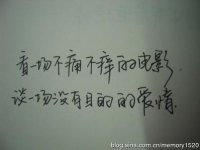 看一场不痛不痒的电影.
谈一场没有目的的爱情.
blog.sina.com.cn/memory1520